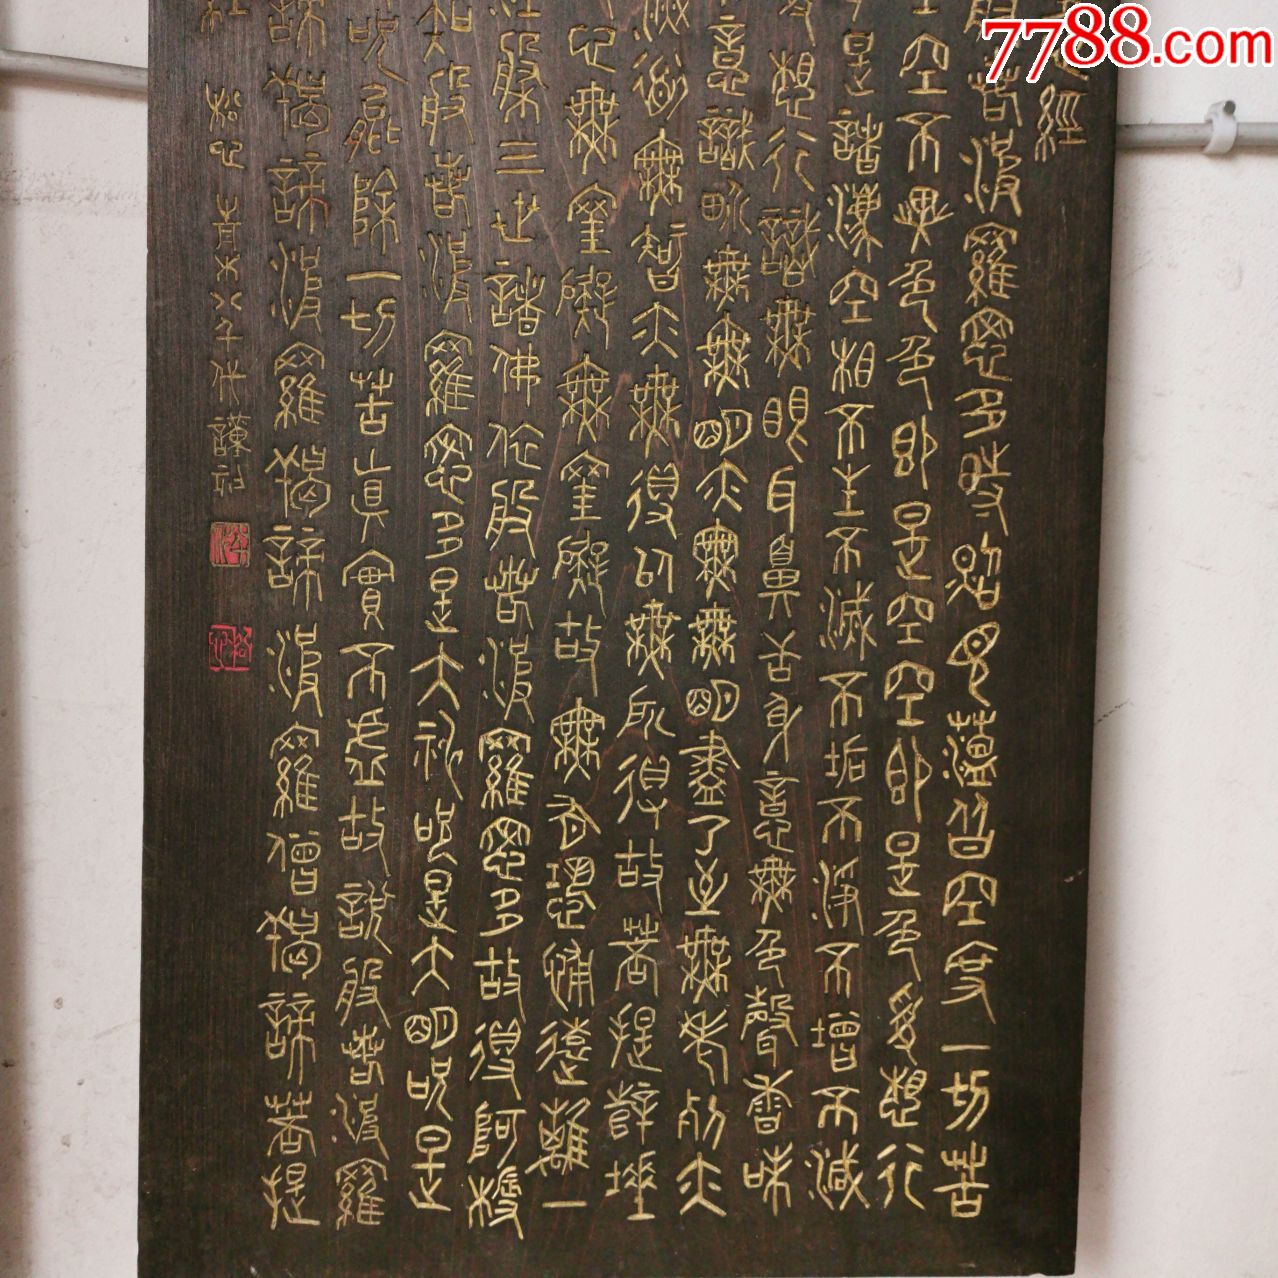 7788.com
心經
般若波羅蜜多時照見蘊皆空度一切苦
空空不異色色即是空空即是色受想行
是諸法空相不生不滅不垢不淨不增不減
受想行識無眼耳鼻舌身意無色聲香味
意識界無無明亦無無明盡乃至無老死亦
滅道無智亦無得以無所得故菩提薩埵
心無罣礙無罣礙故無有恐怖遠離一
般三世諸佛依般若波羅蜜多故得阿耨
知般若波羅蜜多是大神咒是大明咒是
咒能除一切苦真實不虛故說般若波羅
諦揭諦波羅揭諦波羅僧揭諦菩提
經 松心 青木 千代 謹刻